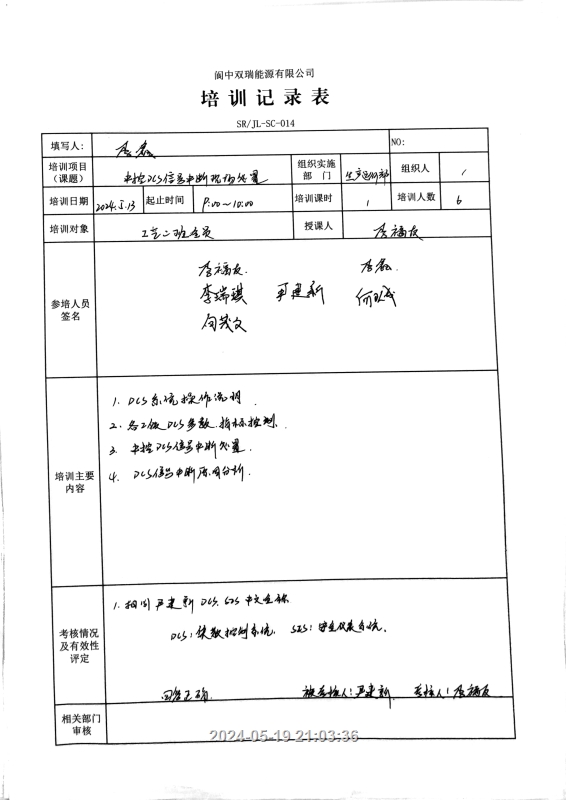 阆中双瑞能源有限公司
培训记录表
SR/JL-SC-014
填写人: 李磊 NO:
培训项目(课题) 中控DCS信号中断现场处置 组织实施部门 生产运行部 组织人 /
培训日期 2024.5.13 起止时间 9:00~10:00 培训课时 1 培训人数 6
培训对象 工艺二班全员 授课人 李福友
参培人员签名
李福友. 李磊.
李瑞琪 尹建新 何
向茂文
培训主要内容
1. DCS系统操作说明.
2. 各工做DCS参数.指标控制.
3. 中控DCS信号中断处置.
4. DCS信号中断原因分析.
考核情况及有效性评定
1. 抽问 尹建新 DCS. SIS 中文全称
DCS: 集散控制系统. SIS: 安全仪表系统.
回答正确. 被考核人: 尹建新. 考核人: 李福友
相关部门审核
2024-05-19 21:03:36